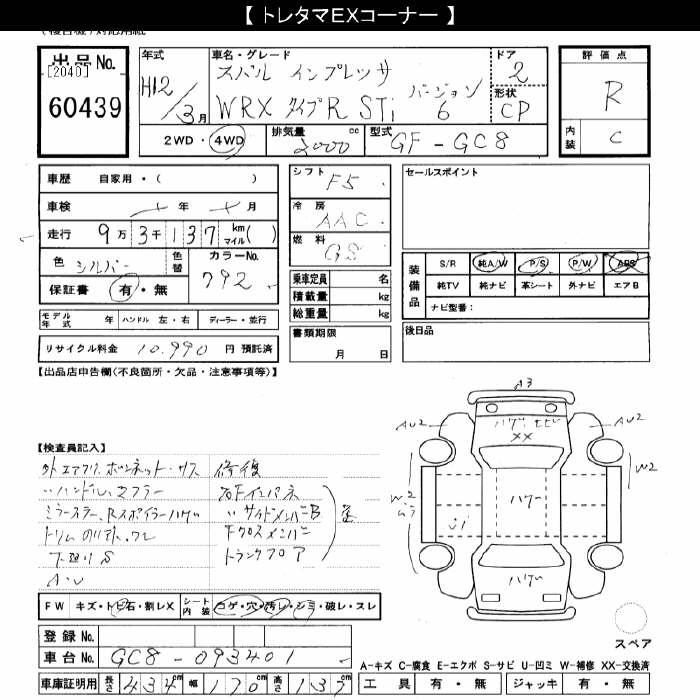 【 トレタマEXコーナー 】
出品No.
[2040]
60439
年式
H12
3月
車名・グレード
スバル インプレッサ
WRX タイプR STi バージョン6
ドア
2
形状
CP
評価点
R
内装
C
2WD・4WD
排気量
2000 cc
型式
GF-GC8
車歴 自家用・( )
車検 年 月
走行 9万3千137 km マイル( )
色
シルバー
色替
カラーNo.
792
保証書 有・無
モデル年式 年 ハンドル 左・右 ディーラー・並行
リサイクル料金 10,990 円 預託済
シフト
F5
冷房
AAC
燃料
GS
乗車定員 名
積載量 kg
総重量 kg
書類期限
月 日
セールスポイント
装備品
S/R 純A/W P/S P/W ABS
純TV 純ナビ 革シート 外ナビ エアB
ナビ型番:
後日品
【出品店申告欄(不良箇所・欠品・注意事項等)】
【検査員記入】
外エアクリ、ボンネット、サス
〃ハンドル、マフラー
下廻りS
A・U
修復
〃サイドメンバーB
Fクロスメンバー
トランクフロア
A3
AU2
AU2
ハゲ
XX
W2
W2
ハゲー
ハゲ
FW キズ・トビ石・割レX
シート内装 コゲ・穴・汚レ・シミ・破レ・スレ
登録No.
車台No. GC8-093401
車庫証明用 長さ 434cm 幅 170cm 高さ 139cm
スペア
A-キズ C-腐食 E-エクボ S-サビ U-凹ミ W-補修 XX-交換済
工具 有・無 ジャッキ 有・無